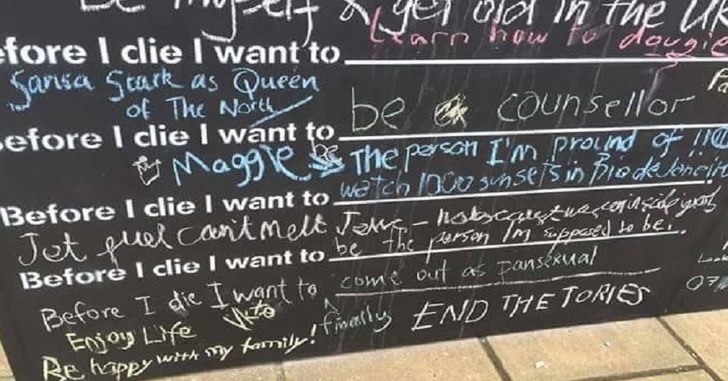 Be myself & get old in the
Learn how to dougie
efore I die I want to
Sansa Stark as Queen
of The North
be a counsellor
efore I die I want to
Maggie be The person I'm proud of !!!
watch 1000 sunsets in Rio de Janeiro
Before I die I want to
Jet fuel can't melt
be the person I'm supposed to be.
Before I die I want to
come out as pansexual
Before I die I want to
Enjoy Life
finally END THE TORIES
Be happy with my family!